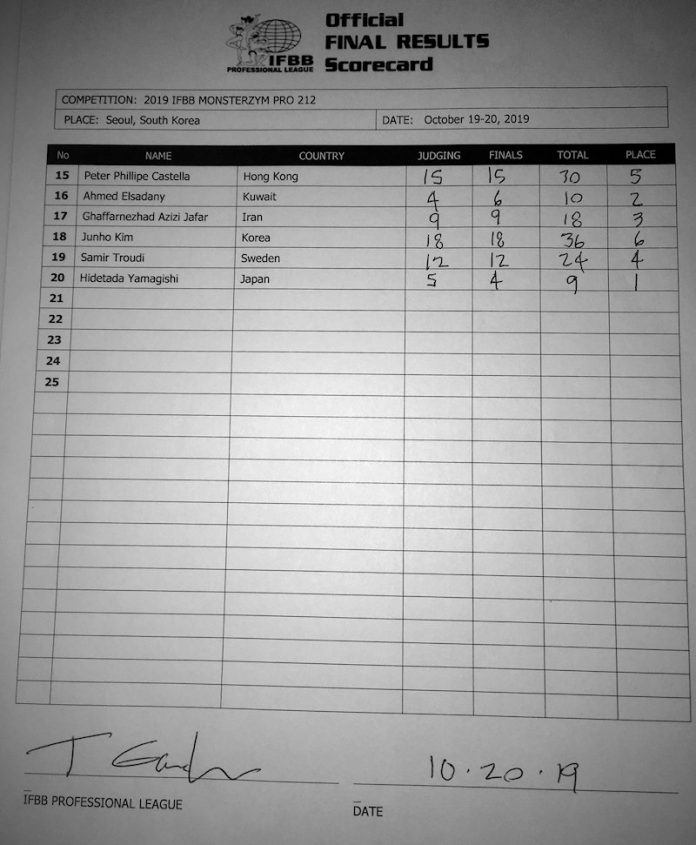 Official
FINAL RESULTS
Scorecard
IFBB
PROFESSIONAL LEAGUE
COMPETITION: 2019 IFBB MONSTERZYM PRO 212
PLACE: Seoul, South Korea DATE: October 19-20, 2019
No NAME COUNTRY JUDGING FINALS TOTAL PLACE
15 Peter Phillipe Castella Hong Kong 15 15 30 5
16 Ahmed Elsadany Kuwait 4 6 10 2
17 Ghaffarnezhad Azizi Jafar Iran 9 9 18 3
18 Junho Kim Korea 18 18 36 6
19 Samir Troudi Sweden 12 12 24 4
20 Hidetada Yamagishi Japan 5 4 9 1
21
22
23
24
25
T 10.20.19
IFBB PROFESSIONAL LEAGUE DATE